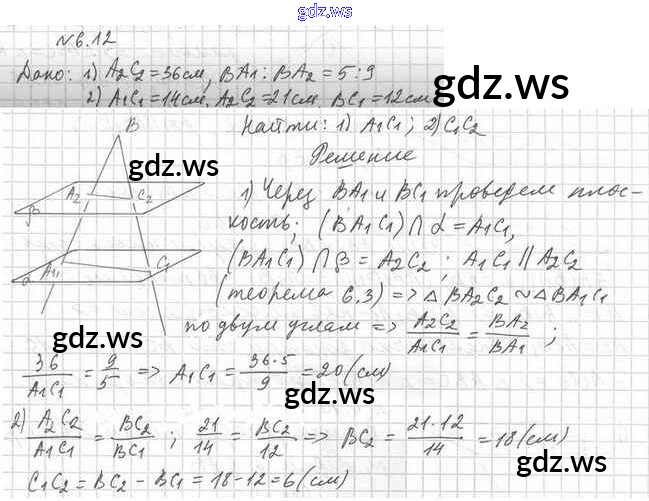 gdz.ws
№6.12
Дано: 1) A₂C₂=36см, BA₁:BA₂=5:9
2) A₁C₁=14см. A₂C₂=21см, BC₁=12см
gdz.ws
Найти: 1) A₁C₁; 2) C₁C₂
Решение
B
gdz.ws
A₂ C₂
β
A₁ C₁
α
1) Через BA₁ и BC₁ проведем плос-
кость; (BA₁C₁)∩α=A₁C₁,
(BA₁C₁)∩β=A₂C₂; A₁C₁||A₂C₂
(теорема 6.3) => △BA₂C₂~△BA₁C₁
по двум углам => A₂C₂/A₁C₁ = BA₂/BA₁;
gdz.ws
36/A₁C₁ = 9/5 => A₁C₁ = 36·5/9 = 20 (см)
gdz.ws
2) A₂C₂/A₁C₁ = BC₂/BC₁; 21/14 = BC₂/12 => BC₂ = 21·12/14 = 18 (см)
C₁C₂ = BC₂ - BC₁ = 18-12 = 6 (см)
gdz.ws